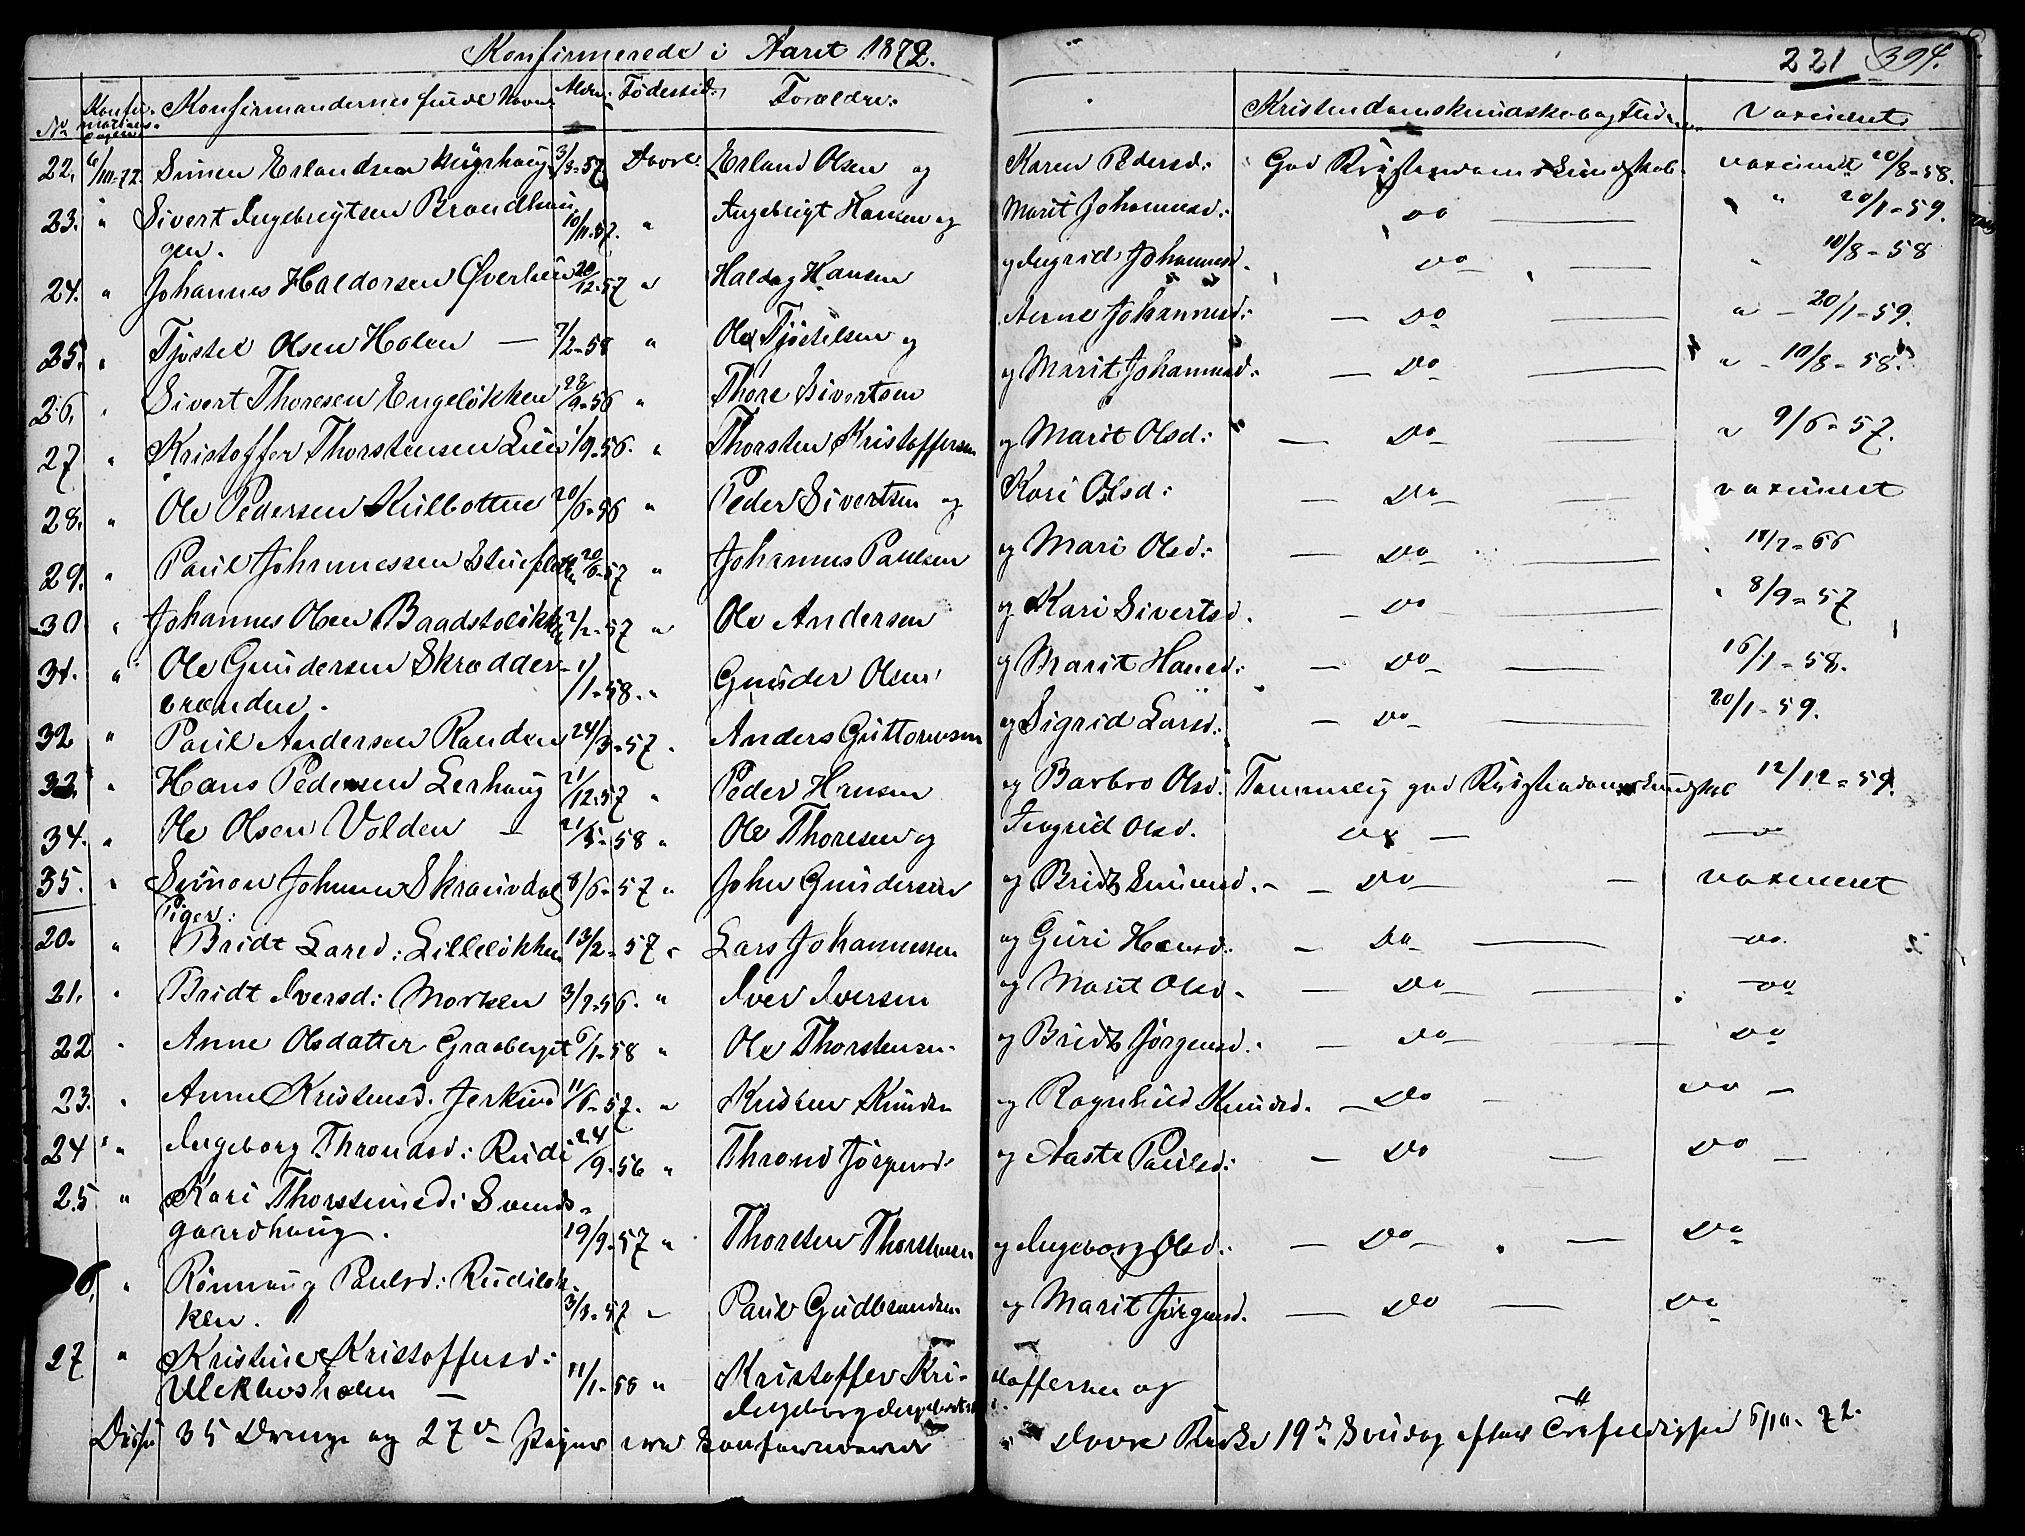 Konfirmerede i Aaret 1872.
221 394.
No Konfirmations-dagen Konfirmandernes fulde Navne Alder. Födested. Forældre. Kristendomskundskab og Flid Vaxineret
22. 6/10-72. Simen Erlandsen 3/3-57 Dovre Erland Olsen og Karen Pedersd: God Kristendomskundskab. vaxineret 20/8-58.
23. " Sivert Ingebrigtsen Brandhau- 10/11-57. " Ingebrigt Hansen og Marit Johannesd: do — " 20/1-59.
gen.
24. " Johannes Haldorsen Øverlien 20/12-57 " Haldog Hansen og Ingrid Johannesd. do — " 10/8-58
25. " Tjøstel Olsen Holen — 7/2-58 " Ole Tjöstelsen og Anne Johannesd: — do — " - 20/1-59.
26. " Sivert Thoresen Engeløkken 23/9-56 " Thore Sivertsen og Marit Johannesd: — do — " - 10/8-58.
27 " Kristoffer Thorstensen Lien 1/9-56. " Thorsten Kristoffersen og Marit Olsd: — do — " 9/6-57.
28. " Ole Pedersen Kulbotten 20/6-56 " Peder Sivertsen og Kari Olsd: — do — vaxineret
29. " Paul Johannessen 20/6-57 " Johannes Paulsen og Mari Olsd: — do — " 18/7-66
30 " Johannes Olsen Baadstoløkken 2/2-57 " Ole Andersen og Kari Sivertsd. — do — " 8/9-57
31. " Ole Gundersen Skrædder- 1/1-58. " Gunder Olsen og Marit Hansd: — do — 16/1-58.
brænden.
32 " Paul Andersen Randen 24/3-57 " Anders Guttormsen og Sigrid Larsd: — do — 20/1-59.
33. " Hans Pedersen Lerhaug 21/12-57 " Peder Hansen og Barbro Olsd. Temmelig god Kristendomskundskab 12/12-59.
34. " Ole Olsen Volden — 21/5-58 " Ole Thoresen og Ingrid Olsd. do — — do
35. " Simon Johnsen 8/6-57 " John Gundersen og Bridt Simensd. — do — vaxineret
Piger:
20. " Bridt Larsd: Lilleløkken 13/2-57 " Lars Johannessen og Guri Hansd: — do — do.
21. " Bridt Iversd: Morken 3/7-56. " Iver Iversen og Marit Olsd. — do — do
22 " Anne Olsdatter Graaberget 6/1-58 " Ole Thorstensen og Bridt Jørgensd. — do — do
23. " Anne Kristensd. Jerkind 11/6-57. " Kristen Knudsen og Ragnhild Knudsd. — do — do —
24 " Ingeborg Throndsd: Rudi 24/9-56 " Thrond Jörgens: og Aaste Paulsd: — do — do —
25 " Kari Thorstensd: Svends-
gaardhaug. 19/9-57 " Thorsten Thorstensen og Ingeborg Olsd: — do — do
26. " Rönnaug Paulsd: Rudiløk-
ken. 3/8-57 " Paul Gudbrandsen og Marit Jörgensd. — do — do
27 " Kristine Kristoffersd: 11/1-58 " Kristoffer Kri- stoffersen og
Ulekleivsholen — Ingeborg Ingebrigtsd.
Disse 35 Drenge og 27 Piger ere konfirmerede i Dovre Kirke 19de Söndag efter Trefoldighed 6/10-72.